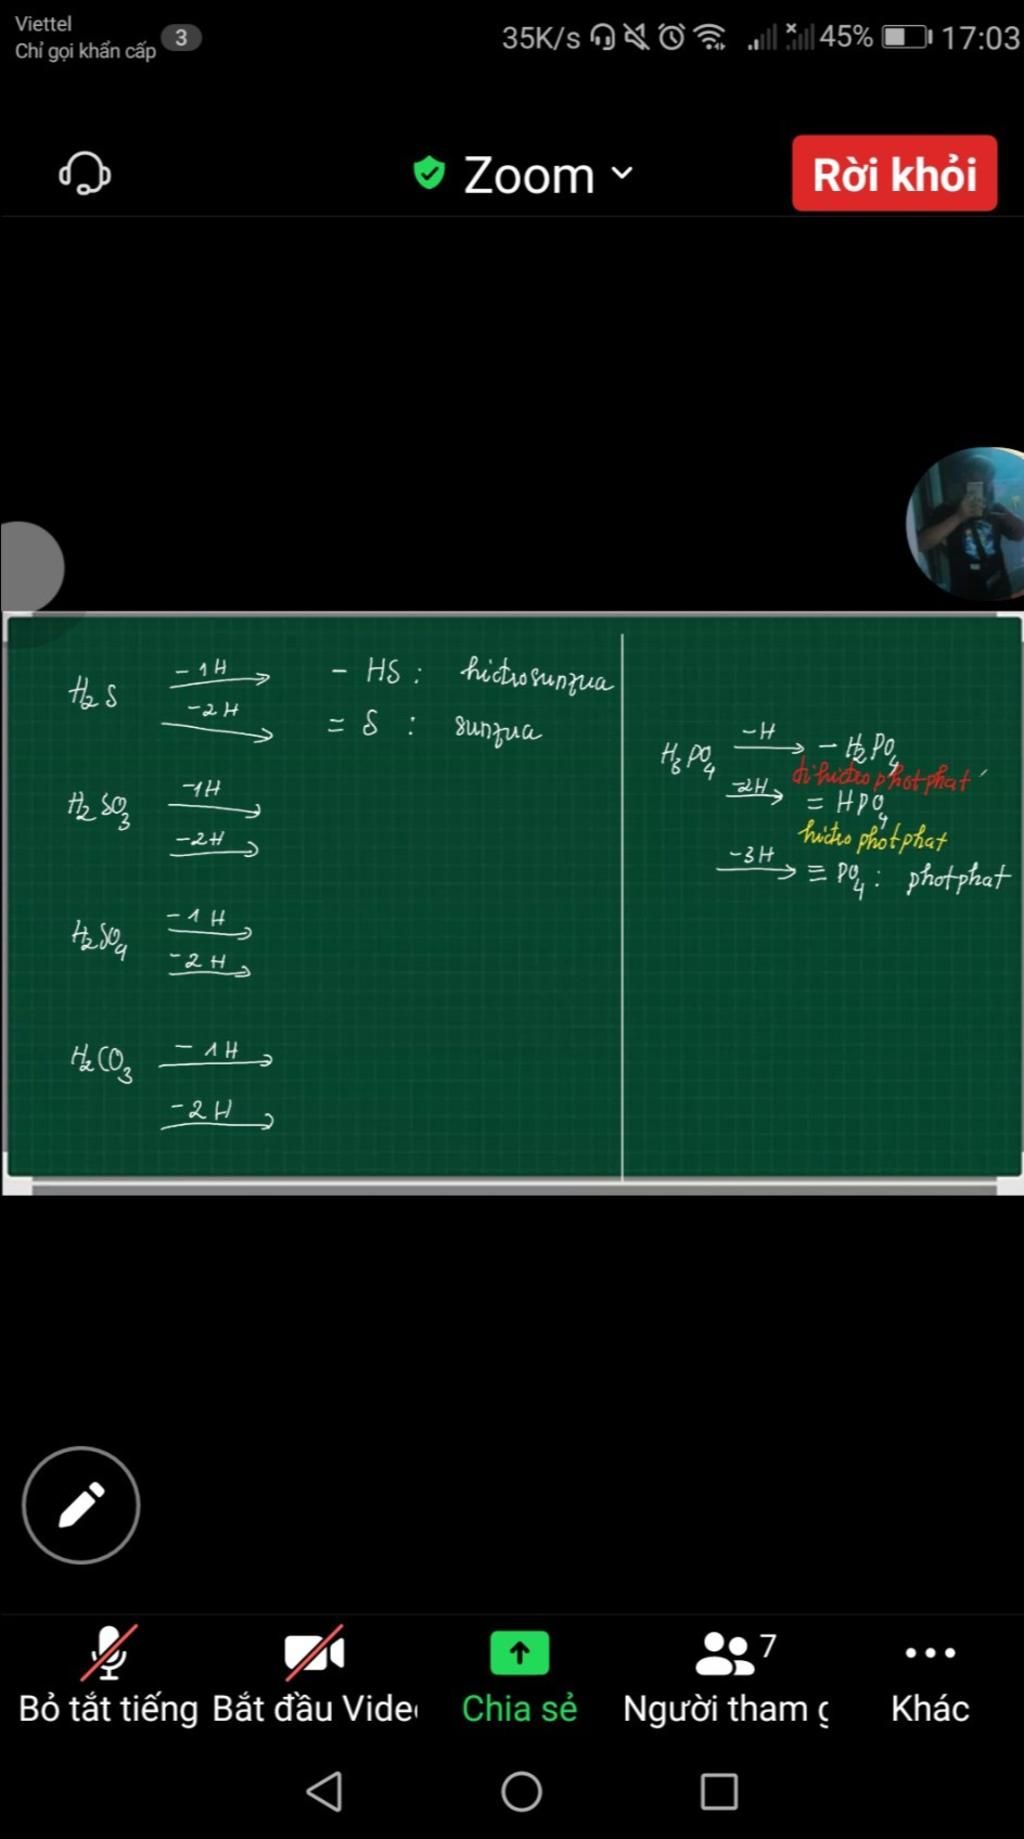 Viettel
Chỉ gọi khẩn cấp 3
35K/s 45% 17:03
Zoom
Rời khỏi
H₂S -1H - HS : hidrosunfua
-2H = S : sunfua
H₂SO₃ -1H
-2H
H₂SO₄ -1H
-2H
H₂CO₃ -1H
-2H
H₃PO₄ -H - H₂PO₄
đihidrophotphat
-2H = HPO₄
hidrophotphat
-3H ≡ PO₄ : photphat
Bỏ tắt tiếng
Bắt đầu Vide
Chia sẻ
7
Người tham g
Khác